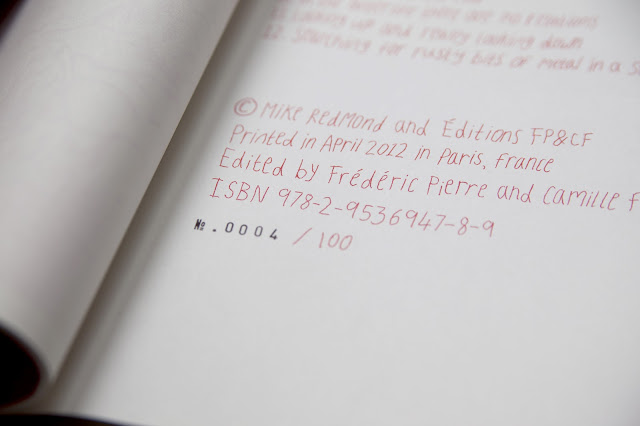 are no
11. Looking up and really looking down
12. Searching for rusky bits of metal in a
© Mike Redmond and Éditions FP&CF
Printed in April 2012 in Paris, France
Edited by Frédéric Pierre and Camille F
ISBN 978-2-9536947-8-9
№.0004 / 100